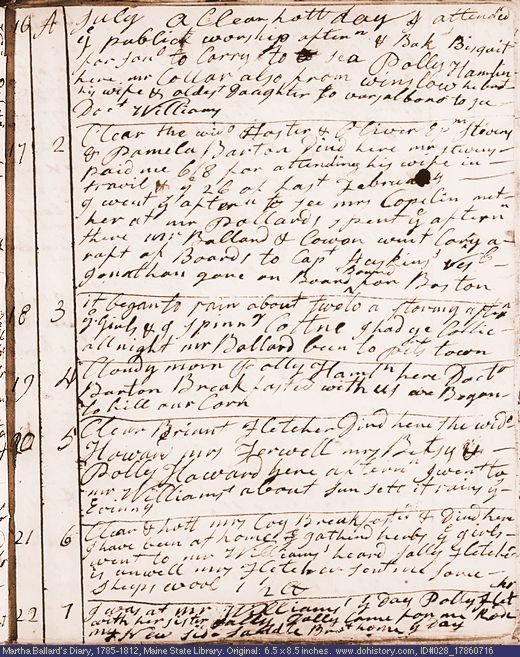 16 A July a Clear hott day I attend.d
ye publick worship aftern & Bak.t Bisquit
for Jona to Carry to sea Polly Hamlin
here mr Collar also from winslow he but
his wife & oldest Daughter to vassalboro to see
Doct Williams
17 2 Clear the wido Foster & Oliver Epm Stevens
& Pamela Barton dind here mr Stevens
paid me 6/8 for attending his wife in
travil ye 26 of last Februar
I went ye aftern to see mrs Copelin met
her at mr Pollards spent ye aftern
there mr Ballard & Cowon went Cary a
raft of Boards to Capt Hoskins Vesl
Jonathan gone on Board Bound for Boston
18 3 it began to rain about two to a stormy aftn
ye Girls & I spinn.d I had ye Collic
all night mr Ballard been to pits town
19 4 Cloudy morn Polly Hamln here Doct
Barton Break fasted with us we Began
to hill our Corn
20 5 Clear Briant Fletcher Dind here the wido
Howard mrs Ferwell mrs Betsy &
Polly Howard here aftern I went to
mr Williams about sun sett it rains ye
Evining
21 6 Clear & hott mrs Coy Breakfasted & Dind here
I have been at home I gathind herbs ye girls
went to mr Williams heard Sally Fletcher
is unwell mrs Fletcher sent me some
sheeps wool
22 7 I was at mr Williams ye day Polly Flet
with her sister Sally Sally came for me Rode
my new side saddle ye day
Martha Ballard's Diary, 1785-1812, Maine State Library. Original: 6.5 x 8.5 inches. www.dohistory.com, ID#028_17860716